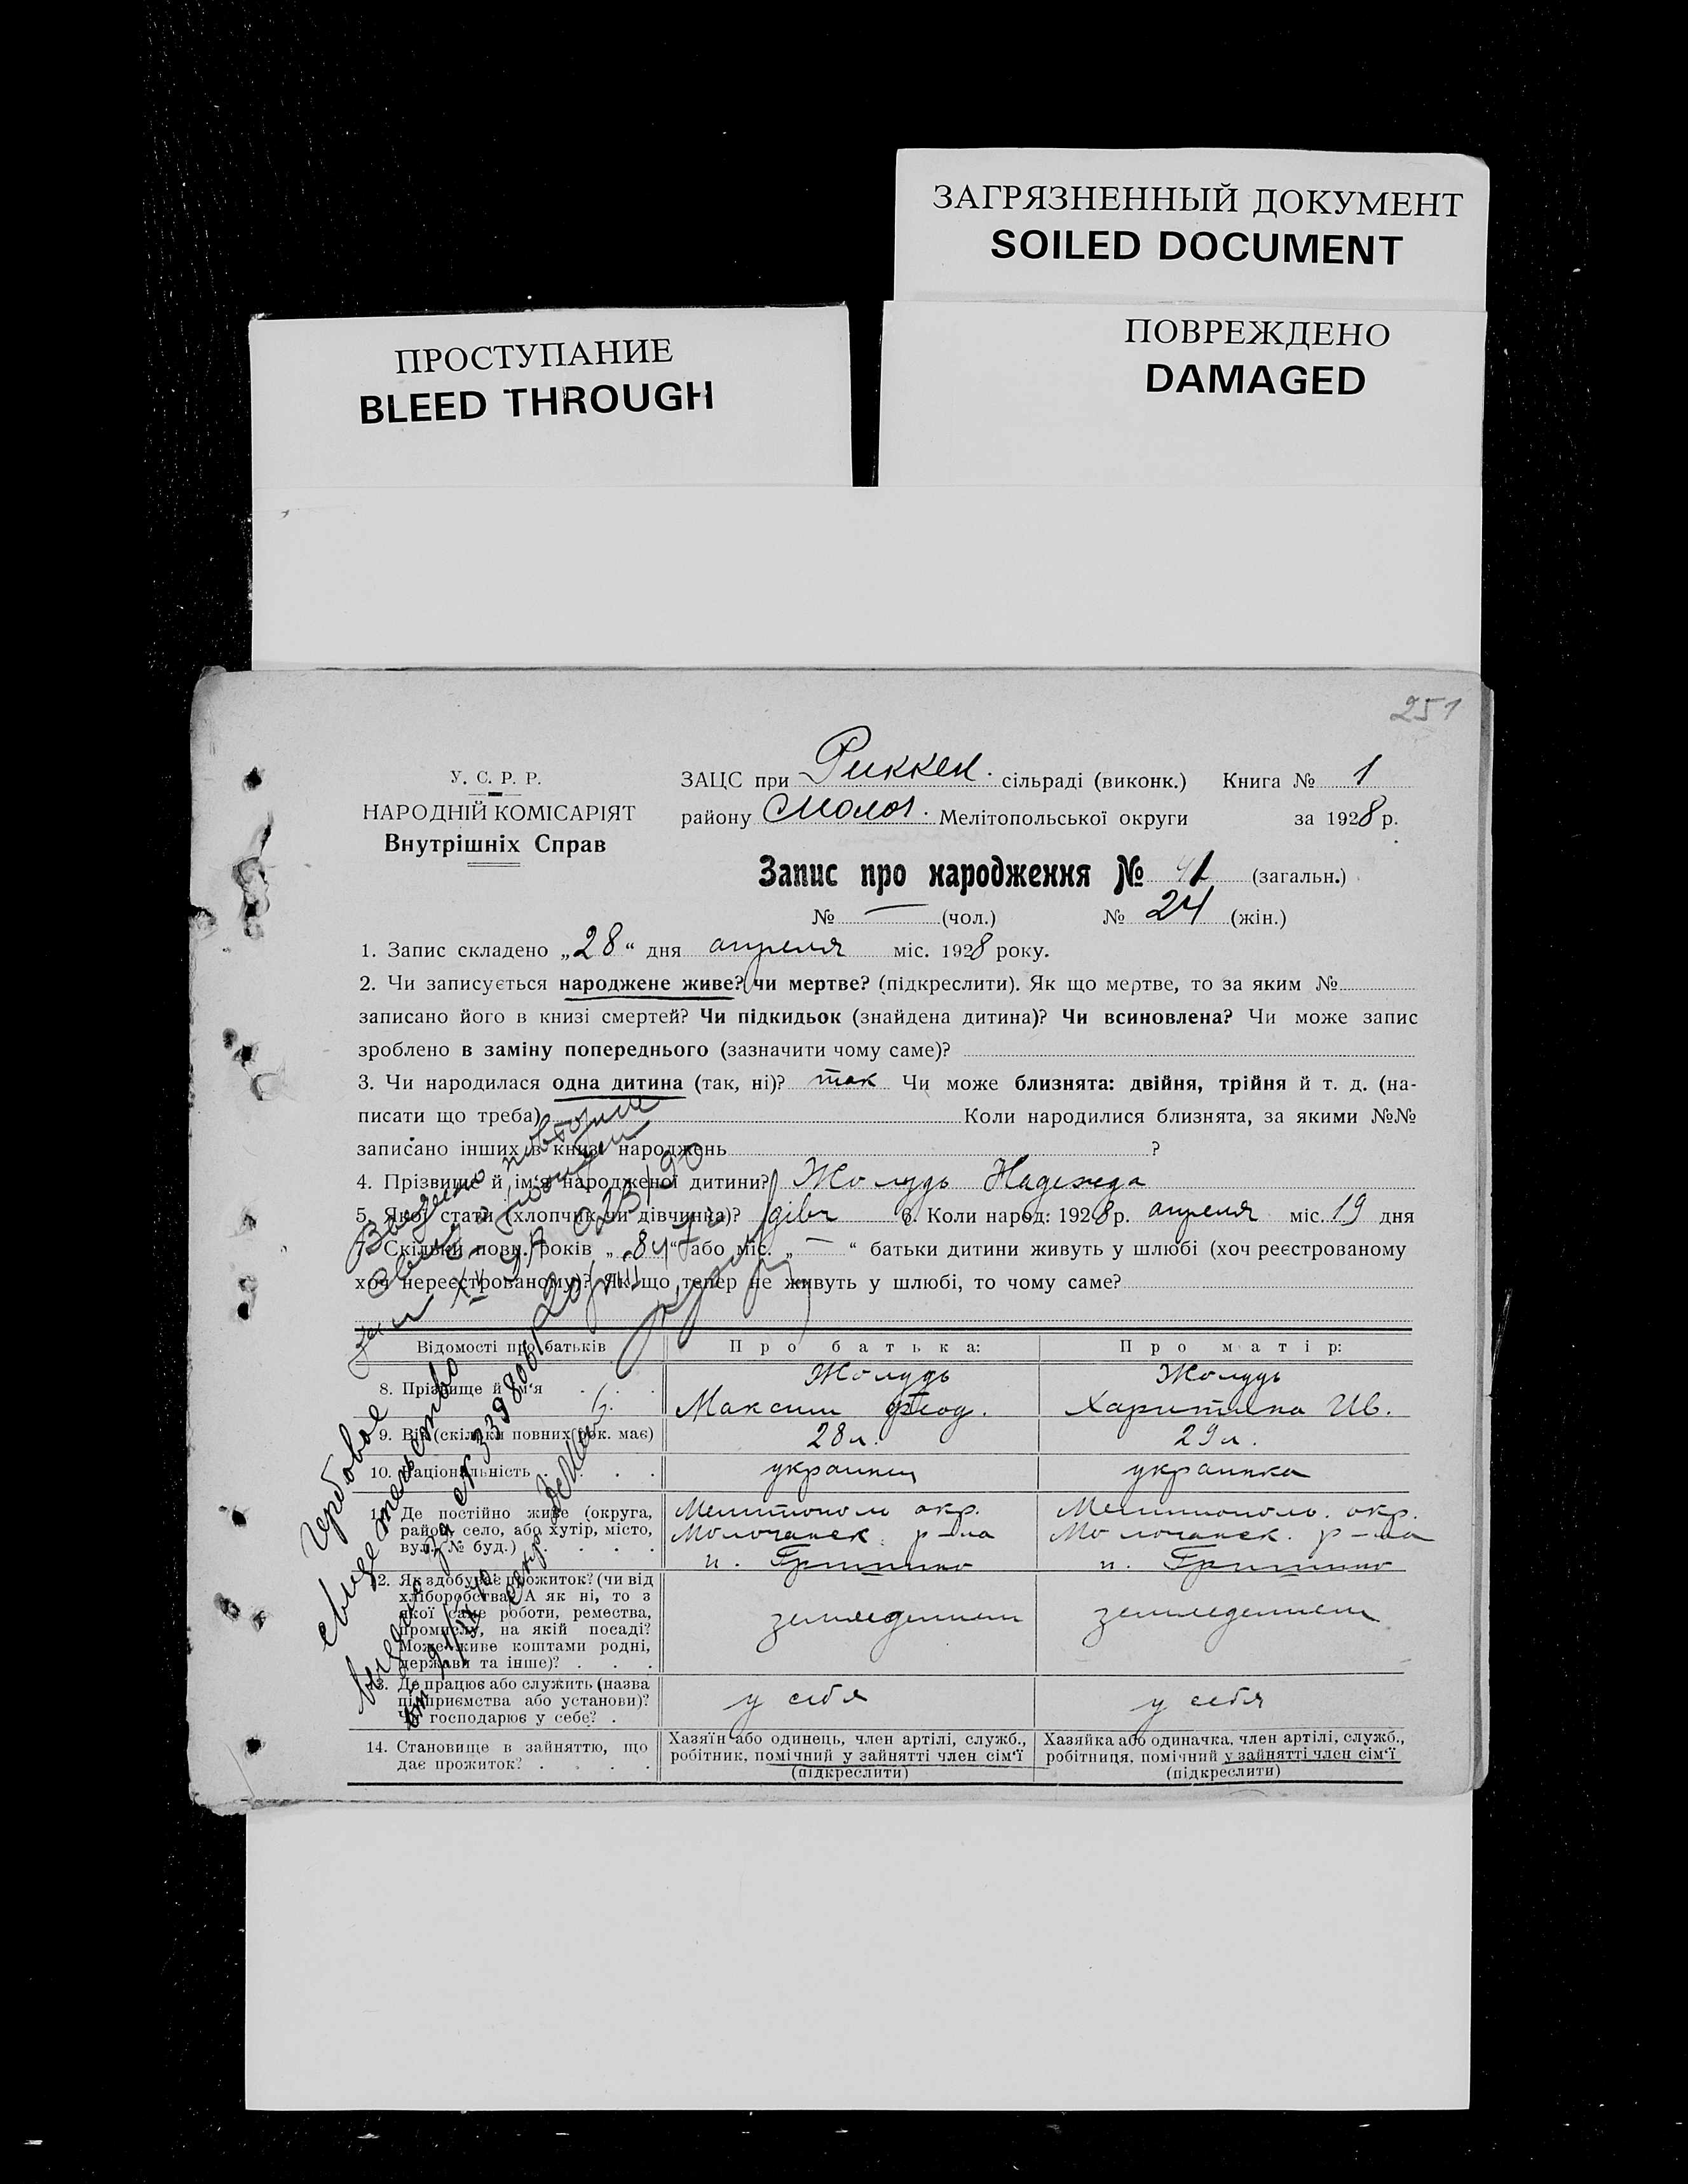 ЗАГРЯЗНЕННЫЙ ДОКУМЕНТ
SOILED DOCUMENT
ПРОСТУПАНИЕ
BLEED THROUGH
ПОВРЕЖДЕНО
DAMAGED
251
У. С. Р. Р.
НАРОДНІЙ КОМІСАРІЯТ
Внутрішніх Справ
ЗАЦС при Риккен. сільраді (виконк.) Книга № 1
району Молоч. Мелітопольської округи за 1928 р.
Запис про народження № 41 (загальн.)
№ — (чол.) № 24 (жін.)
1. Запис складено „28“ дня апреля міс. 1928 року.
2. Чи записується народжене живе? чи мертве? (підкреслити). Як що мертве, то за яким №
записано його в книзі смертей? Чи підкидьок (знайдена дитина)? Чи всиновлена? Чи може запис
зроблено в заміну попереднього (зазначити чому саме)?
3. Чи народилася одна дитина (так, ні)? так Чи може близнята: двійня, трійня й т. д. (на-
писати що треба) Коли народилися близнята, за якими №№
записано інших в книзі народжень ?
4. Прізвище й ім‘я народженої дитини? Жолудь Надежда
5. Якої стати (хлопчик чи дівчинка)? дівч 6. Коли народ: 1928 р. апреля міс. 19 дня
7. Скільки повн. років „8“ або міс. „—“ батьки дитини живуть у шлюбі (хоч реєстрованому
хоч нереєстрованому)? Як що тепер не живуть у шлюбі, то чому саме?
Відомості про батьків Про батька: Про матір:
8. Прізвище й ім‘я Жолудь Максим Феод. Жолудь Харитина Ив.
9. Вік (скільки повних рок. має) 28 л. 29 л.
10. Національність украинец украинка
11. Де постійно живе (округа, Мелитополь окр. Мелитополь. окр.
район, село, або хутір, місто, Молочанск. р-на Молочанск. р-на
вул. № буд.) п. Гришино п. Гришино
12. Як здобуває прожиток? (чи від
хліборобства? А як ні, то з
якої саме роботи, ремества, земледелием земледелием
промислу, на якій посаді?
Може живе коштами родні,
держави та інше)?
13. Де працює або служить (назва
підприємства або установи)? у себя у себя
Чи господарює у себе?
14. Становище в зайняттю, що Хазяїн або одинець, член артілі, служб., Хазяйка або одиначка, член артілі, служб.,
дає прожиток? робітник, помічний у зайнятті член сім‘ї робітниця, помічний у зайнятті член сім‘ї
(підкреслити) (підкреслити)
Гербовое
свидетельство